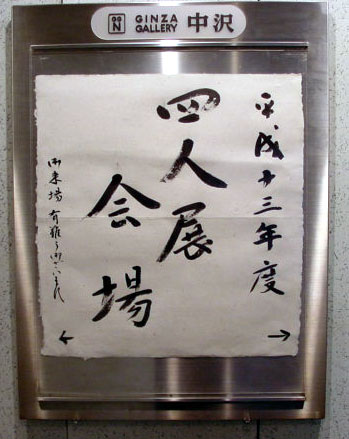 GINZA
GALLERY 中沢
平成十三年度
四人展
会場
御来場 有難う御ざいます
← →